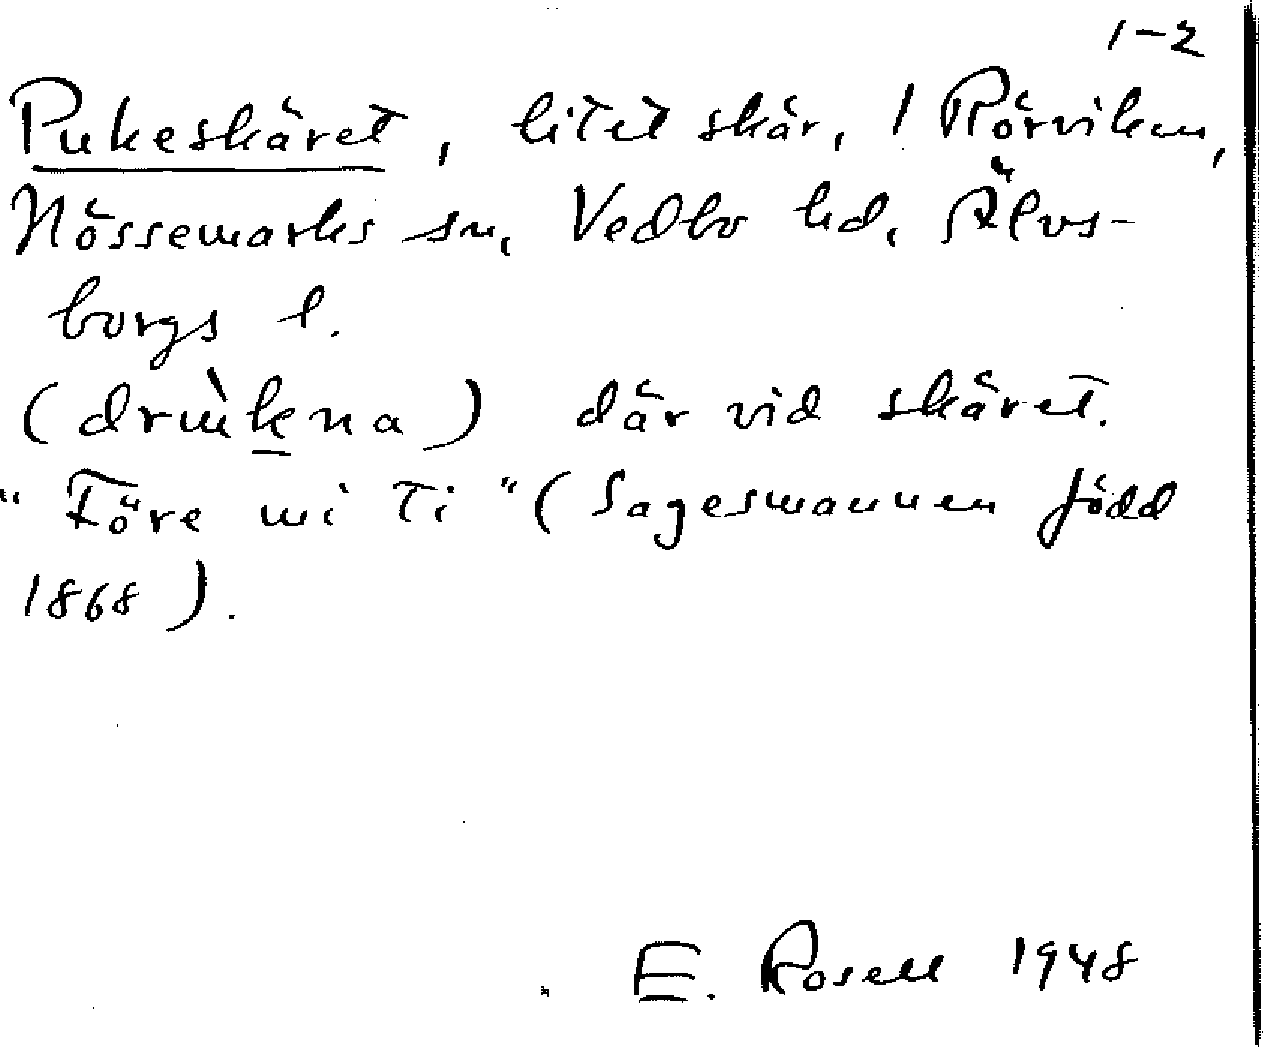 1-2
Pukeskäret, litet skär, i Rörviken,
Nössemarks sn, Vedbo hd, Älvs-
borgs l.
(drukna) där vid skäret.
"Före mi ti" (Sagesmannen född
1868).
E. Rosell 1948